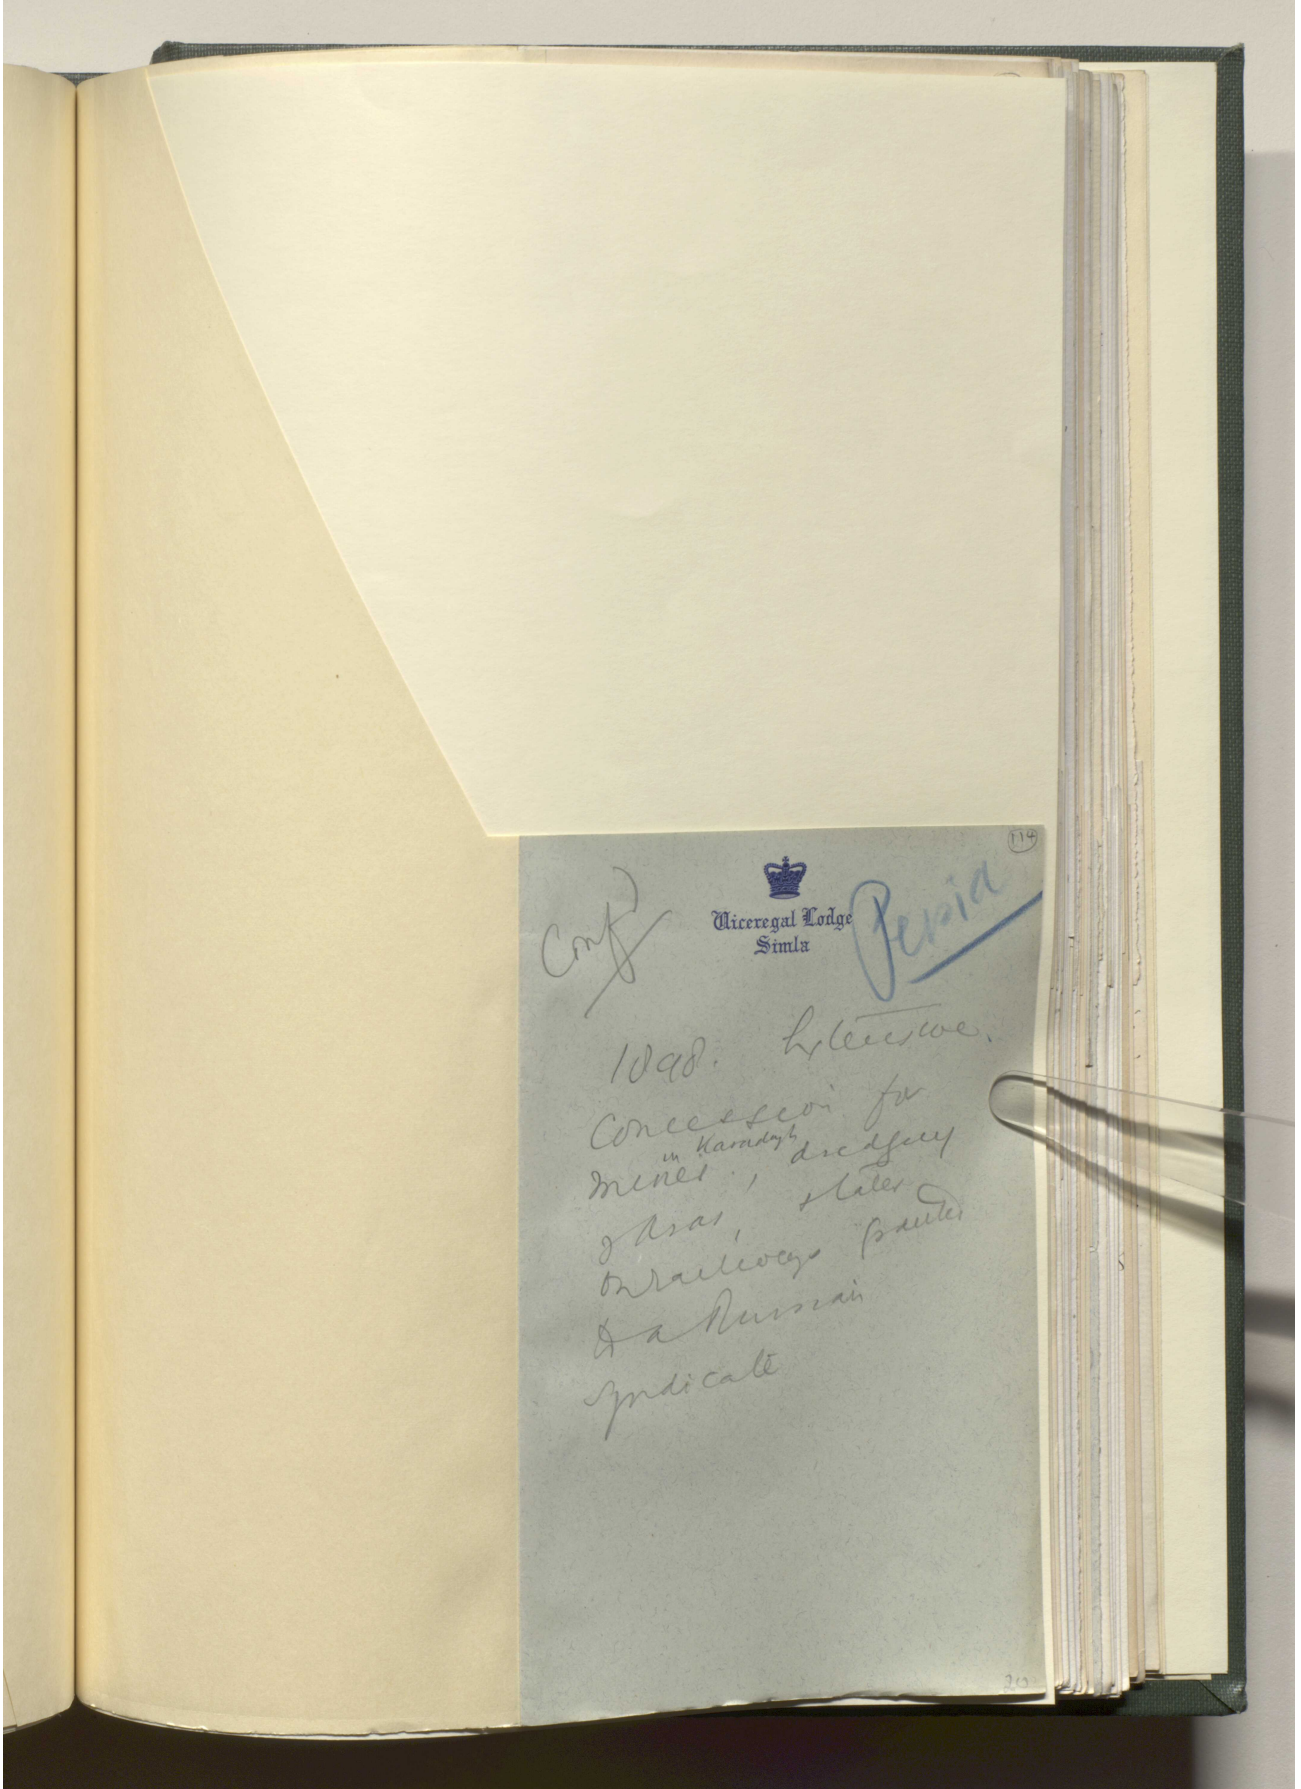 114
Conf
Viceregal Lodge
Simla
Persia
1898. Extensive
Concession for
mines in Karadagh, dredging
of Aras,
on railways granted
to a Russian
syndicate
20